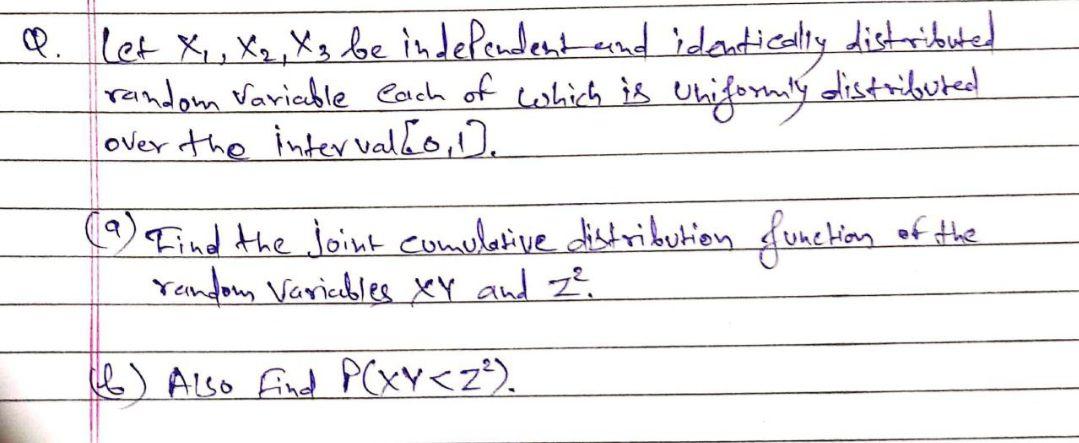 Q. Let X₁, X₂, X₃ be independent and identically distributed
random variable each of which is uniformly distributed
over the interval [0,1].
(a) Find the joint cumulative distribution function of the
random variables XY and Z².
(b) Also find P(XY<Z²).